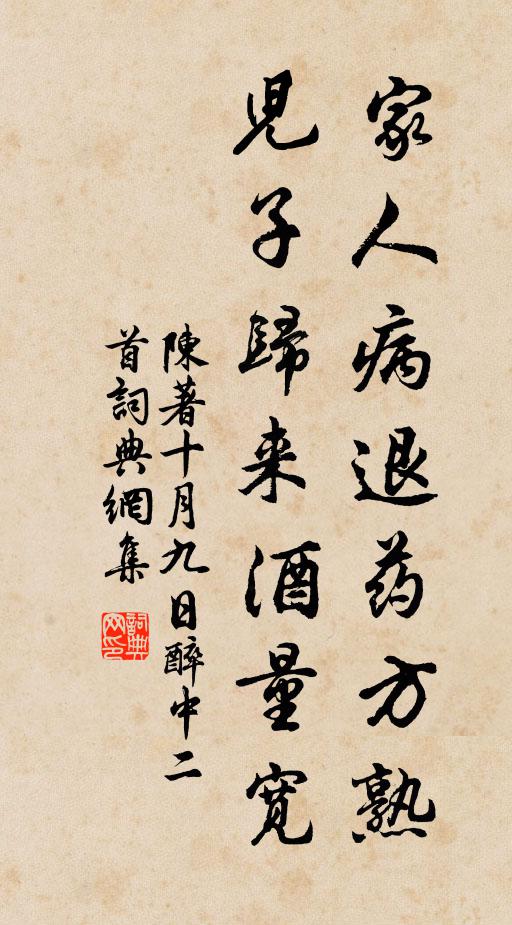 家人病退药方熟
児子歸来酒量寛
陳著十月九日醉中二
首詞典網集
詞典网印